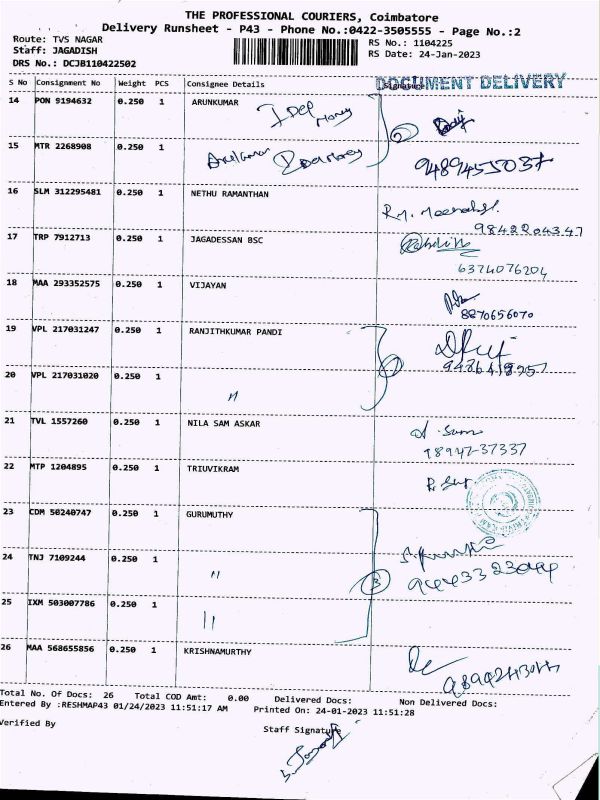 THE PROFESSIONAL COURIERS, Coimbatore
Delivery Runsheet - P43 - Phone No.:0422-3505555 - Page No.:2
Route: TVS NAGAR
Staff: JAGADISH
DRS No.: DCJB110422502
RS No.: 1104225
RS Date: 24-Jan-2023
S No Consignment No Weight PCS Consignee Details Signature DOCUMENT DELIVERY
14 PON 9194632 0.250 1 ARUNKUMAR
Money
2
15 MTR 2268908 0.250 1
9489455037
16 SLM 312295481 0.250 1 NETHU RAMANTHAN
9842204347
17 TRP 7912713 0.250 1 JAGADESSAN BSC
6374076204
18 MAA 293352575 0.250 1 VIJAYAN
8870656070
19 VPL 217031247 0.250 1 RANJITHKUMAR PANDI
20 VPL 217031020 0.250 1 "
21 TVL 1557260 0.250 1 NILA SAM ASKAR
98947-37337
22 MTP 1204895 0.250 1 TRIUVIKRAM
23 CDM 50240747 0.250 1 GURUMUTHY
24 TNJ 7109244 0.250 1 "
3
25 IXM 503007786 0.250 1 "
26 MAA 568655856 0.250 1 KRISHNAMURTHY
Total No. Of Docs: 26 Total COD Amt: 0.00 Delivered Docs: Non Delivered Docs:
Entered By :RESHMAP43 01/24/2023 11:51:17 AM Printed On: 24-01-2023 11:51:28
Verified By Staff Signature